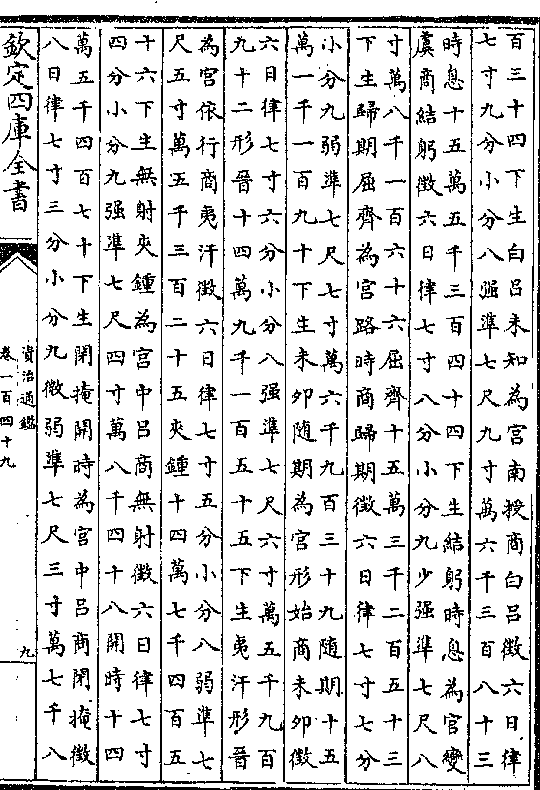 百三十四下生白呂未知為宮南授商白呂徵六日律
七寸九分小分八强準七尺九寸萬六千三百八十三
時息十五萬五千三百四十四下生結躬時息為宮變
虞商結躬徵六日律七寸八分小分九少强準七尺八
寸萬八千一百六十六屈齊十五萬三千二百五十三
下生歸期屈齊為宮路時商歸期徵六日律七寸七分
小分九弱準七尺七寸萬六千九百三十九隨期十五
萬一千一百九十下生未卯隨期為宮形始商未卯徵
六日律七寸六分小分八强準七尺六寸萬五千九百
九十二形晉十四萬九千一百五十五下生夷汗形晉
為宮依行商夷汗徵六日律七寸五分小分八弱準七
尺五寸萬五千三百二十五夾鍾十四萬七千四百五
十六下生無射夾鍾為宮中呂商無射徵六日律七寸
四分小分九强準七尺四寸萬八千四十八開時十四
萬五千四百七十下生閉掩開時為宮中呂商閉掩徵
八日律七寸三分小分九微弱準七尺三寸萬七千八
欽定四庫全書
資治通鑑
卷一百四十九
九